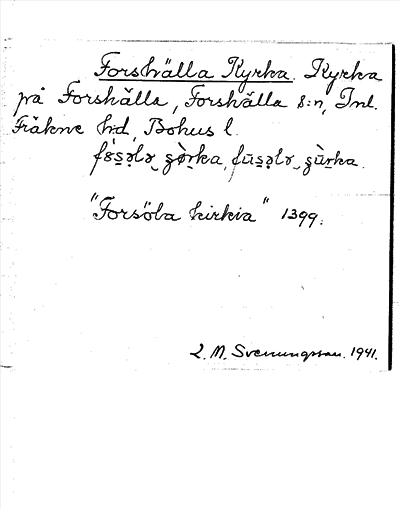 Forshälla Kyrka. Kyrka
på Forshälla, Forshälla s:n, Inl.
Fräkne h:d, Bohus l.
"Forsöla kirkia" 1399.
L. M. Svenungsson. 1941.